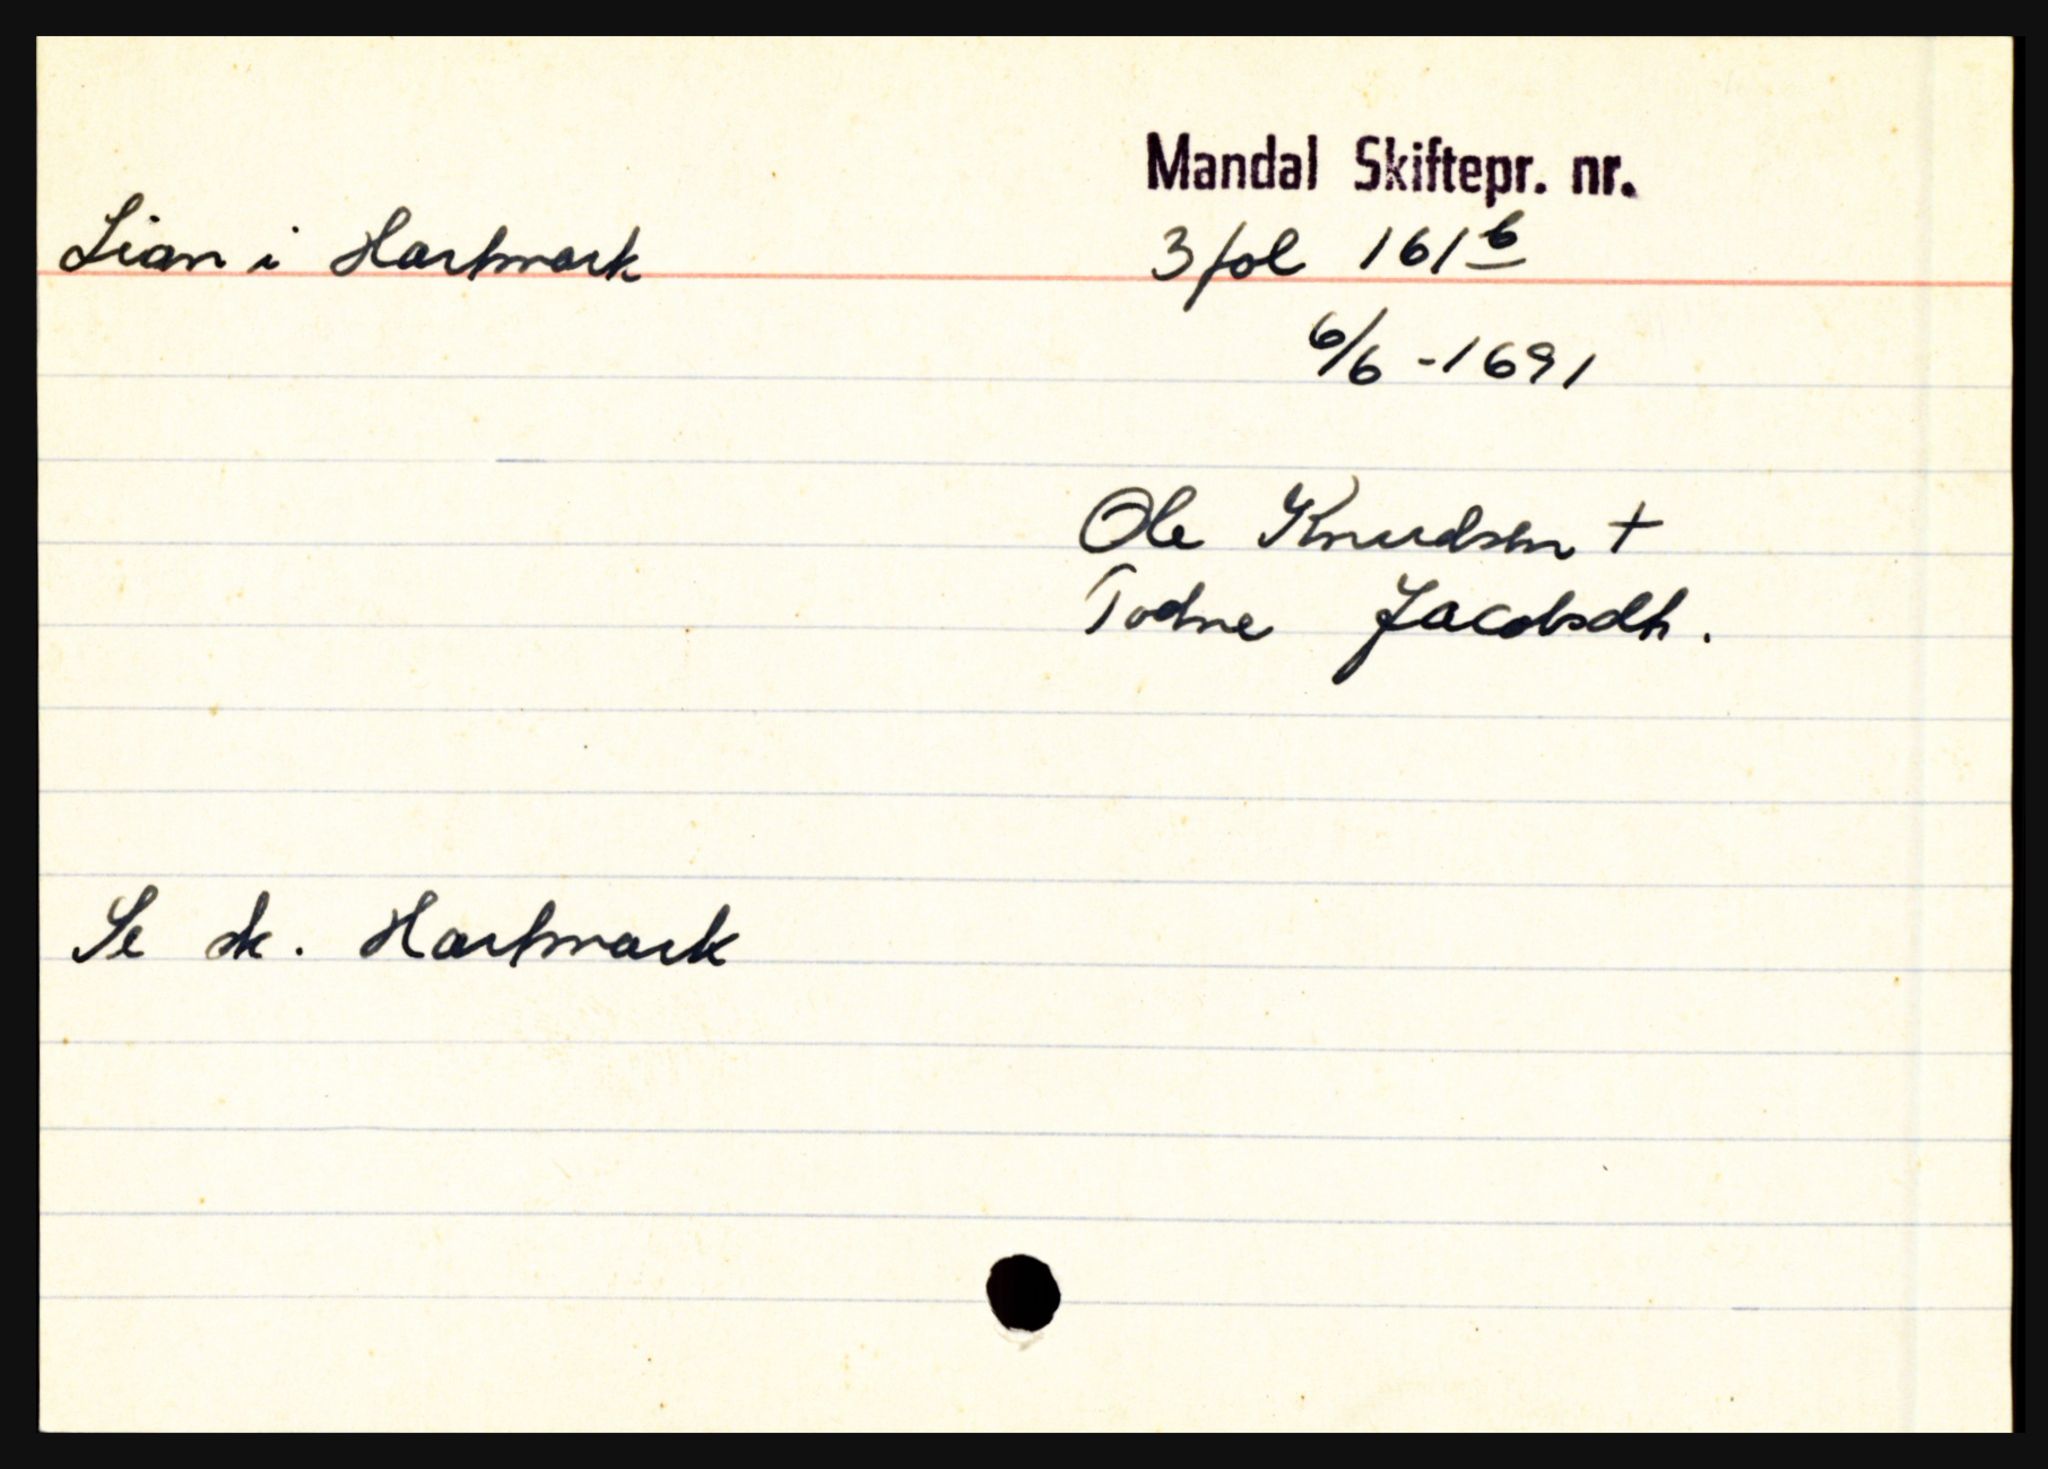 Mandal Skiftepr. nr.
Lian i Hartmark 3 fol 161b
6/6 - 1691
Ole Knudsen +
Todne Jacobsdtr.
Se sk. Hartmark